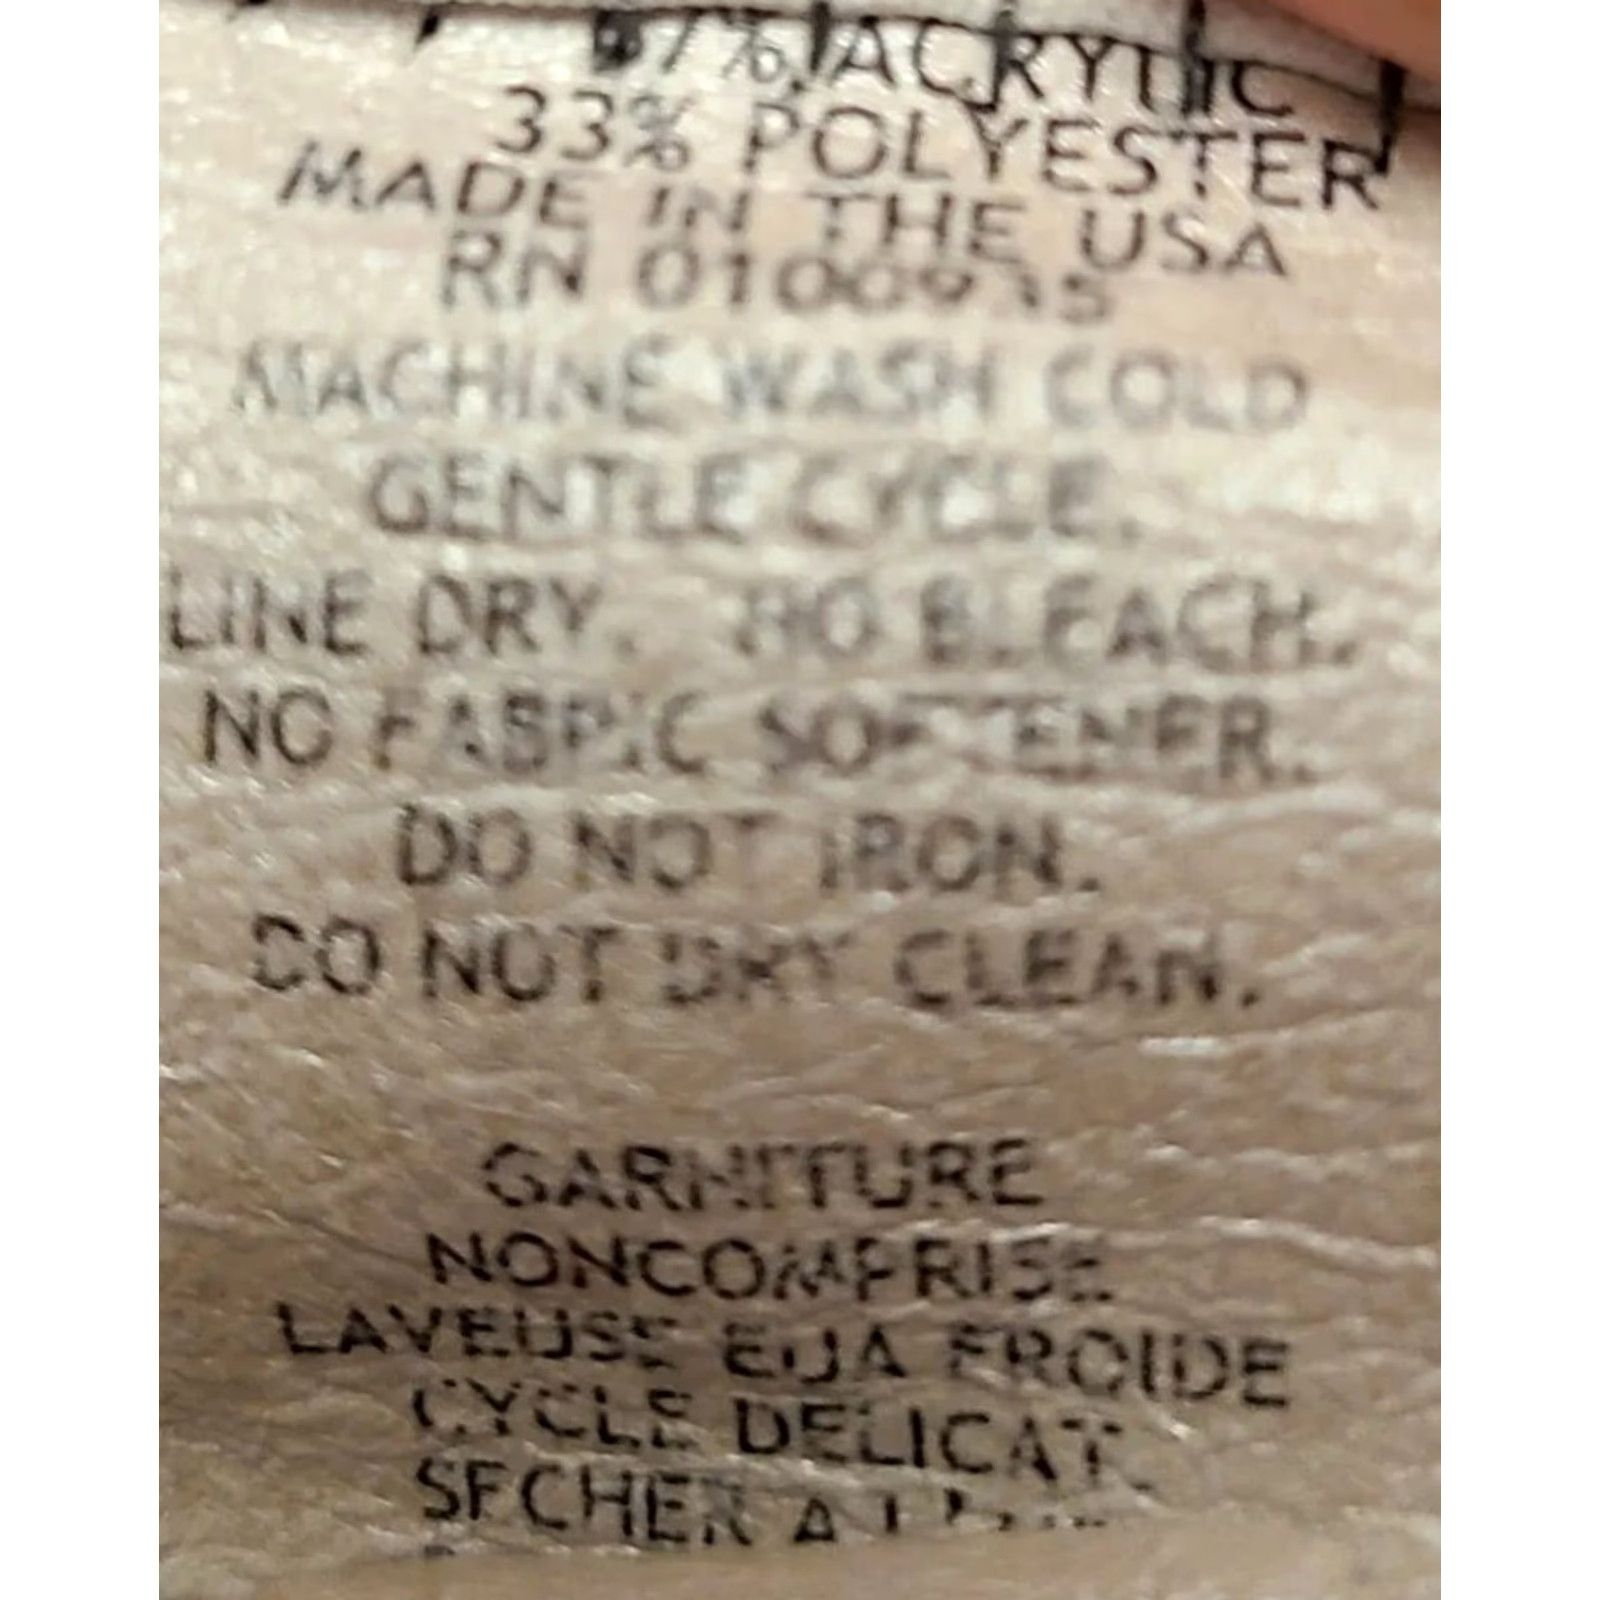 ACRYLIC
33% POLYESTER
MADE IN THE USA
RN
MACHINE WASH COLD
GENTLE CYCLE.
LINE DRY. NO BLEACH.
NO FABRIC SOFTENER.
DO NOT IRON.
DO NOT DRY CLEAN.
GARNITURE
NONCOMPRISE
LAVEUSE EUA FROIDE
CYCLE DELICAT.
SECHER A